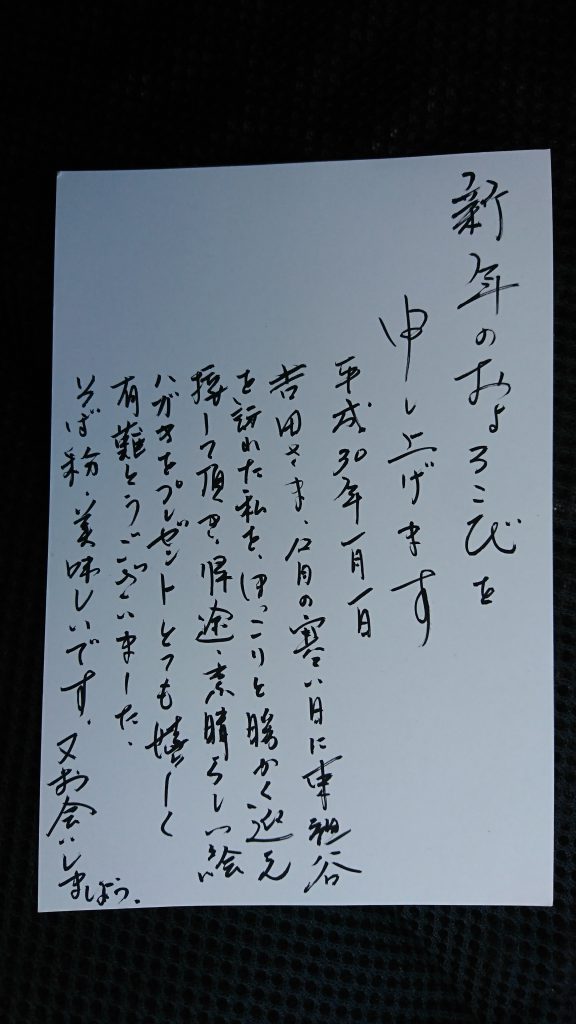 新年のおよろこびを
申し上げます
平成30年一月一日
吉田さま、12月の寒い日に東祖谷
を訪れた私を、ほっこりと暖かく迎え
接して頂き、帰途、素晴らしい絵
ハガキをプレゼントとても嬉しく
有難とうございました。
そば粉、美味しいです。又お会いしましょう。